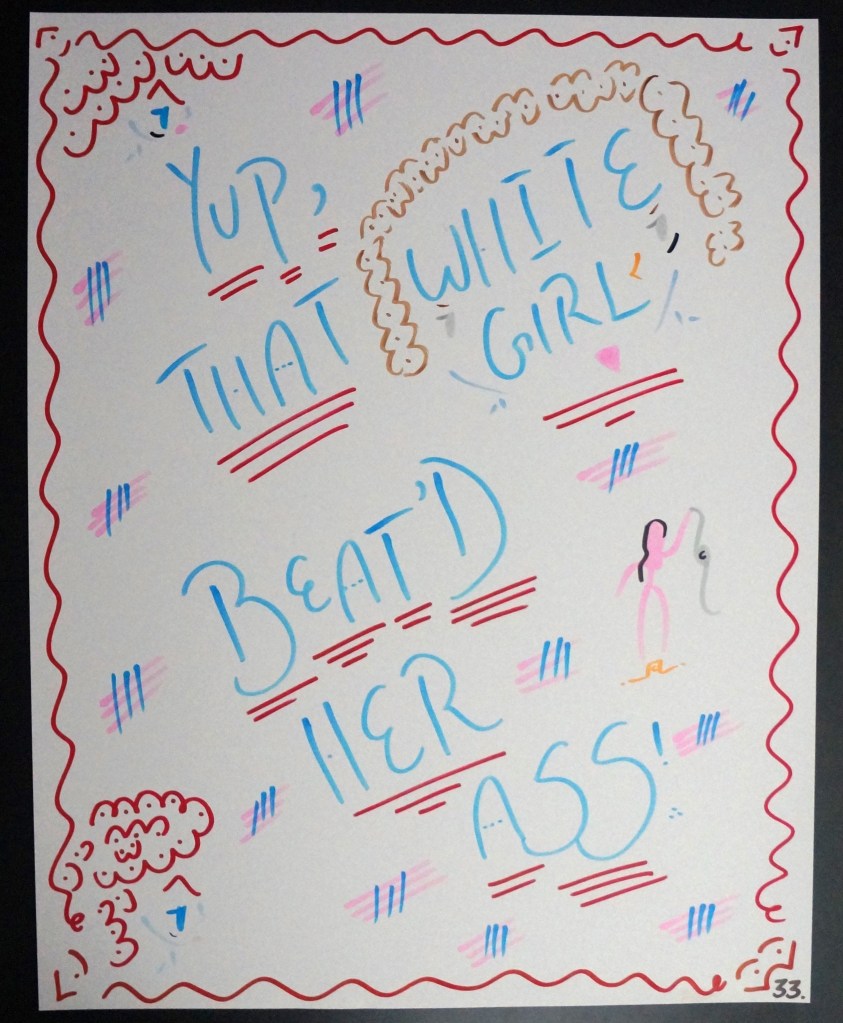 YUP,
THAT WHITE
GIRL
BEAT'D
HER
ASS!
33.